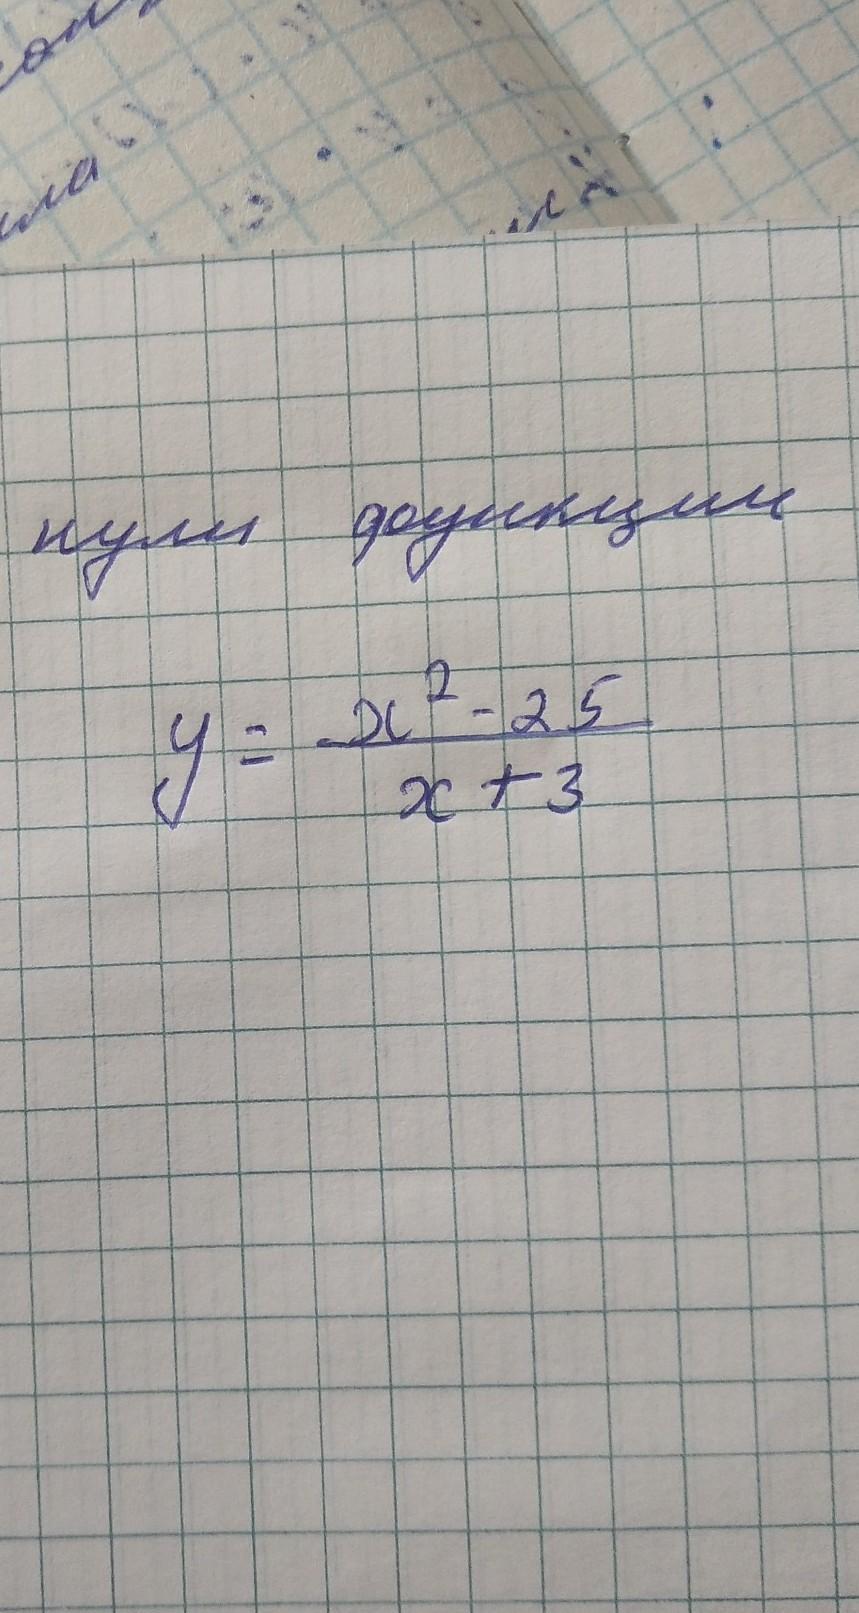 нули функции
y = x² - 25
x + 3